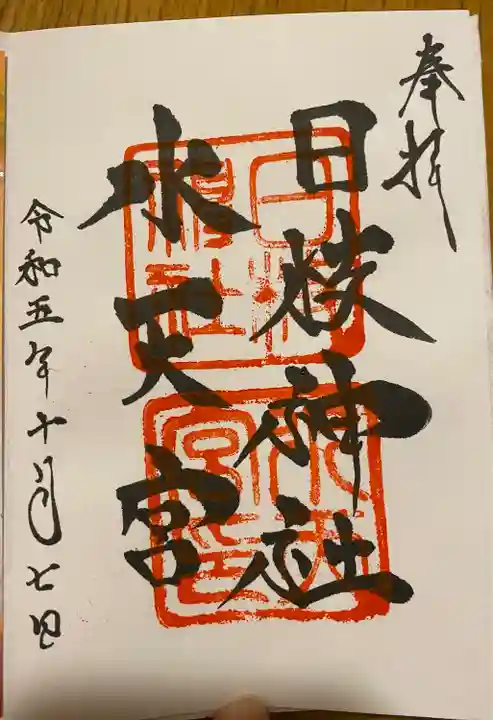 奉拝
日枝神社
水天宮
令和五年十月七日
日枝神社